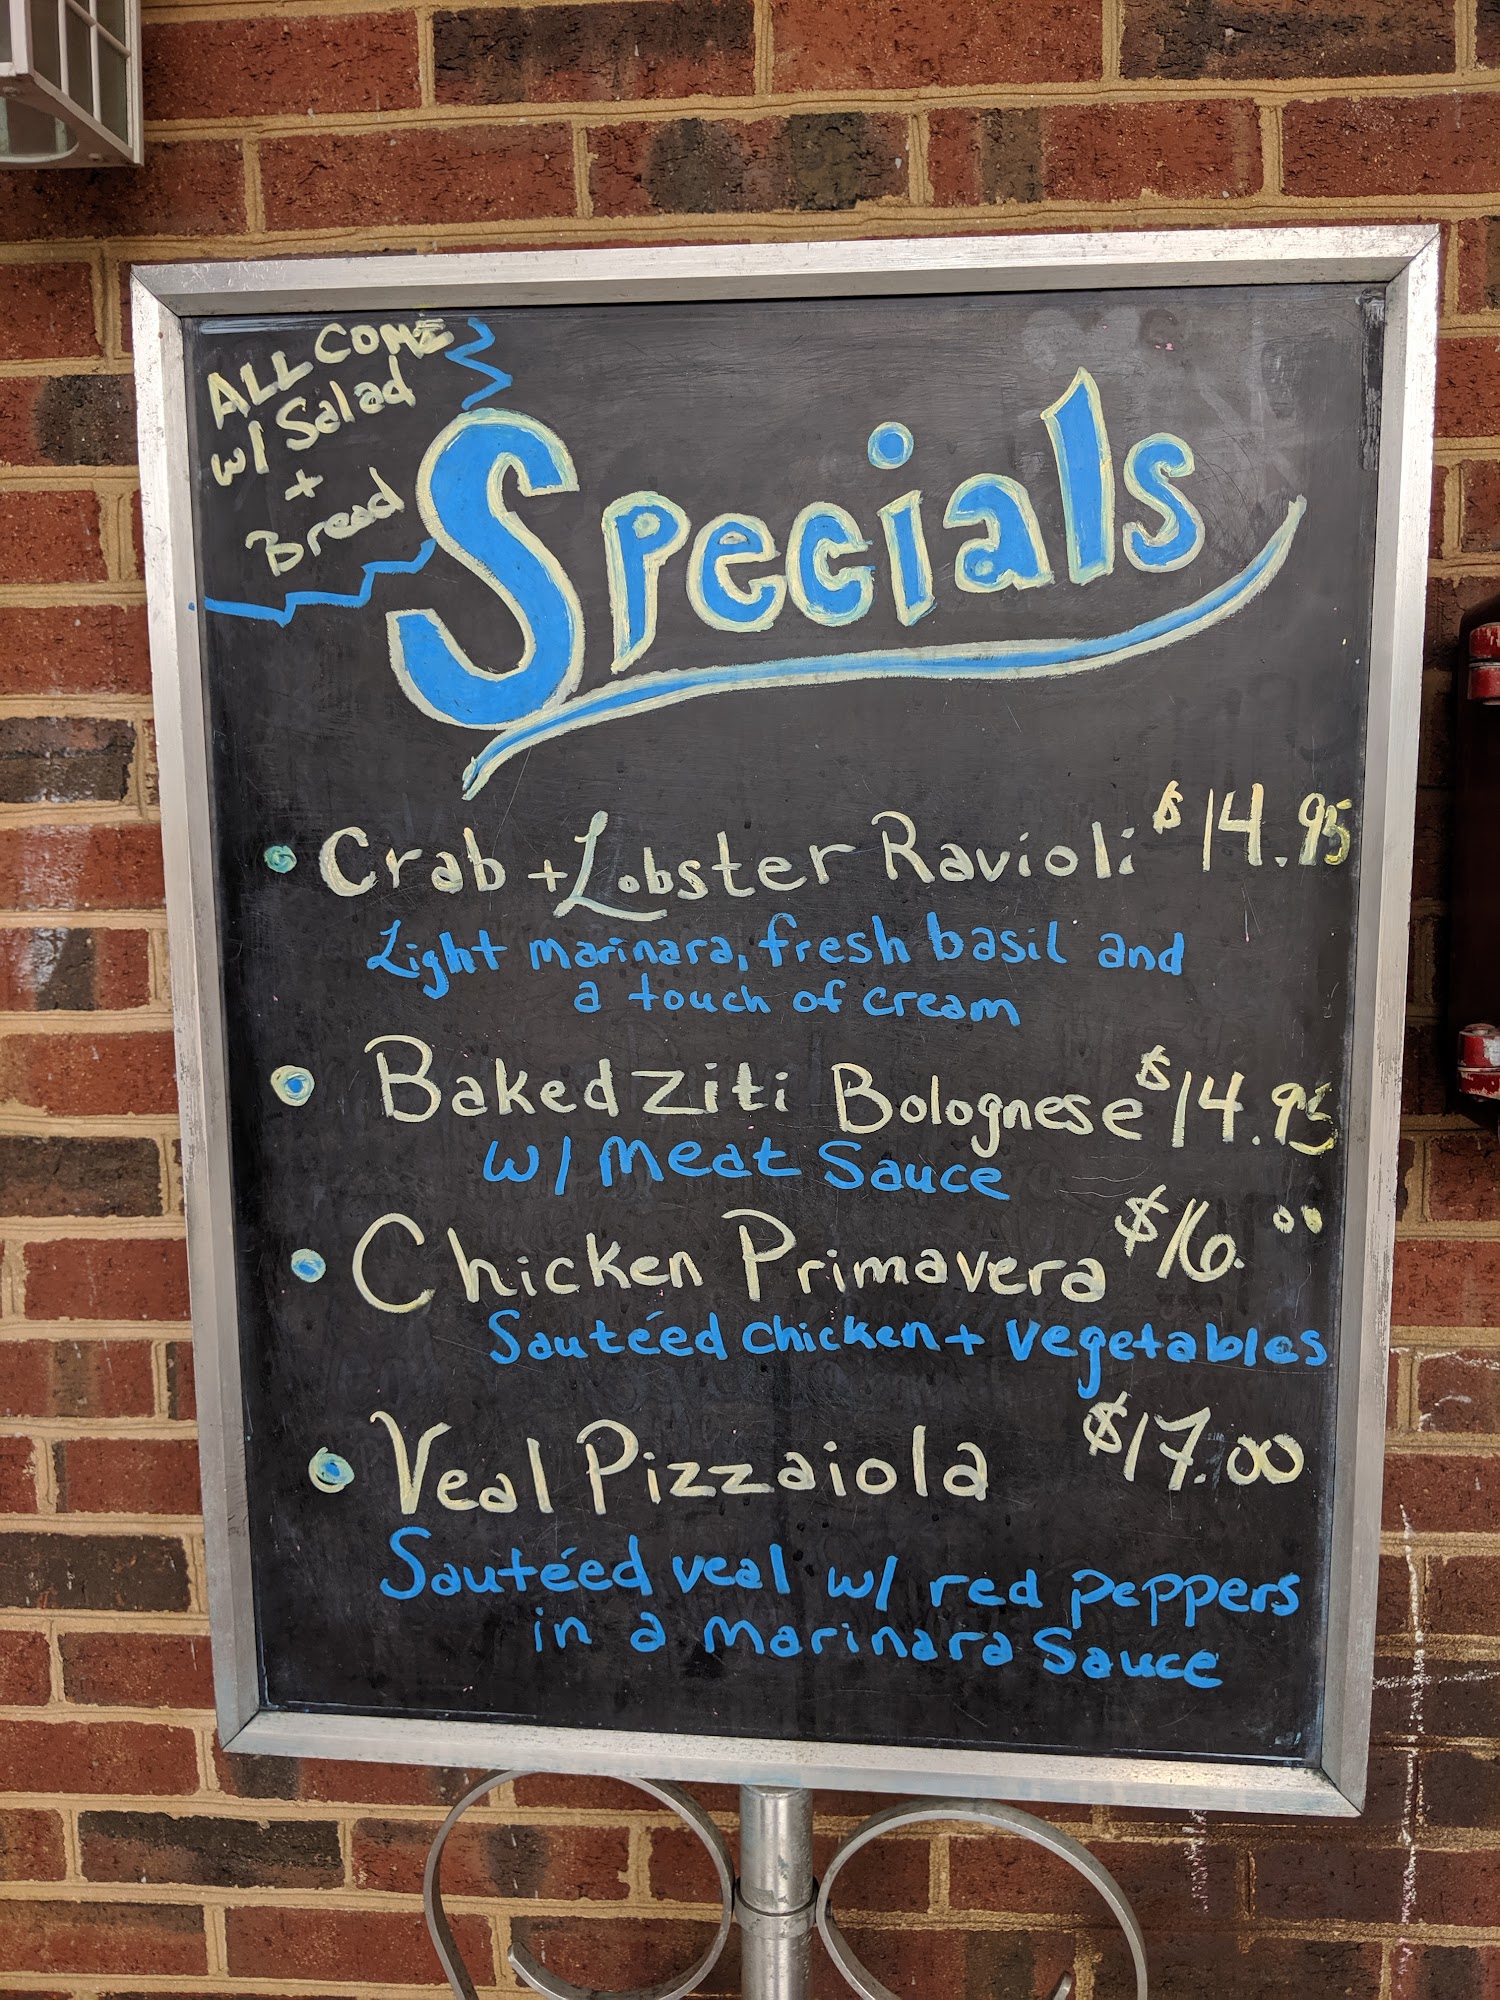 ALL COME
w/ Salad
+
Bread
Specials
Crab + Lobster Ravioli $14.95
Light marinara, fresh basil and
a touch of cream
Baked Ziti Bolognese $14.95
w/ Meat Sauce
Chicken Primavera $16.00
Sautéed chicken + vegetables
Veal Pizzaiola $17.00
Sautéed veal w/ red peppers
in a Marinara Sauce